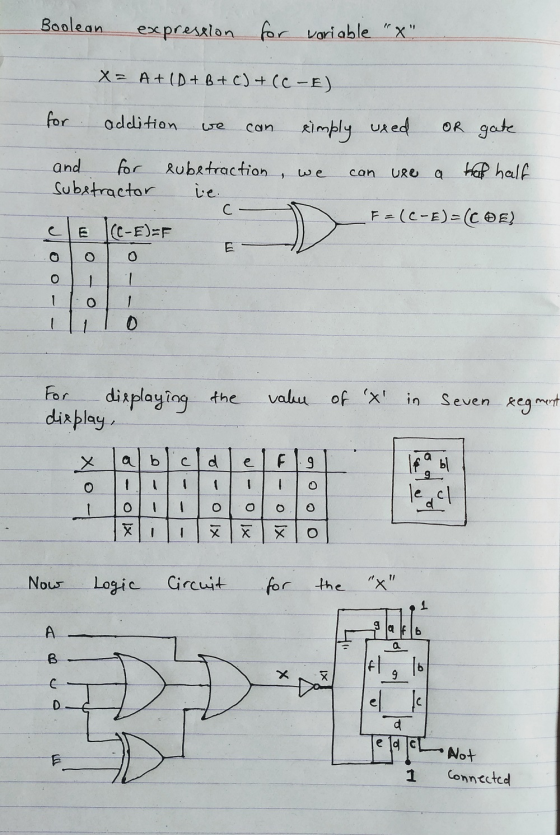 Boolean expression for variable "X"
X = A+(D+B+C)+(C-E)
for addition we can simply used OR gate
and for subtraction, we can use a half
Substractor i.e.
C
E
F = (C-E) = (C⊕E)
C E (C-E)=F
0 0 0
0 1 1
1 0 1
1 1 0
For displaying the value of 'X' in Seven segment
display,
X a b c d e F g
0 1 1 1 1 1 1 0
1 0 1 1 0 0 0 0
X̅ 1 1 X̅ X̅ X̅ 0
a
f b
g
e c
d
Now Logic Circuit for the "X"
A
B
C
D
E
X
X̅
1
g a f b
a
f b
g
e c
d
e d c
1
Not
Connected